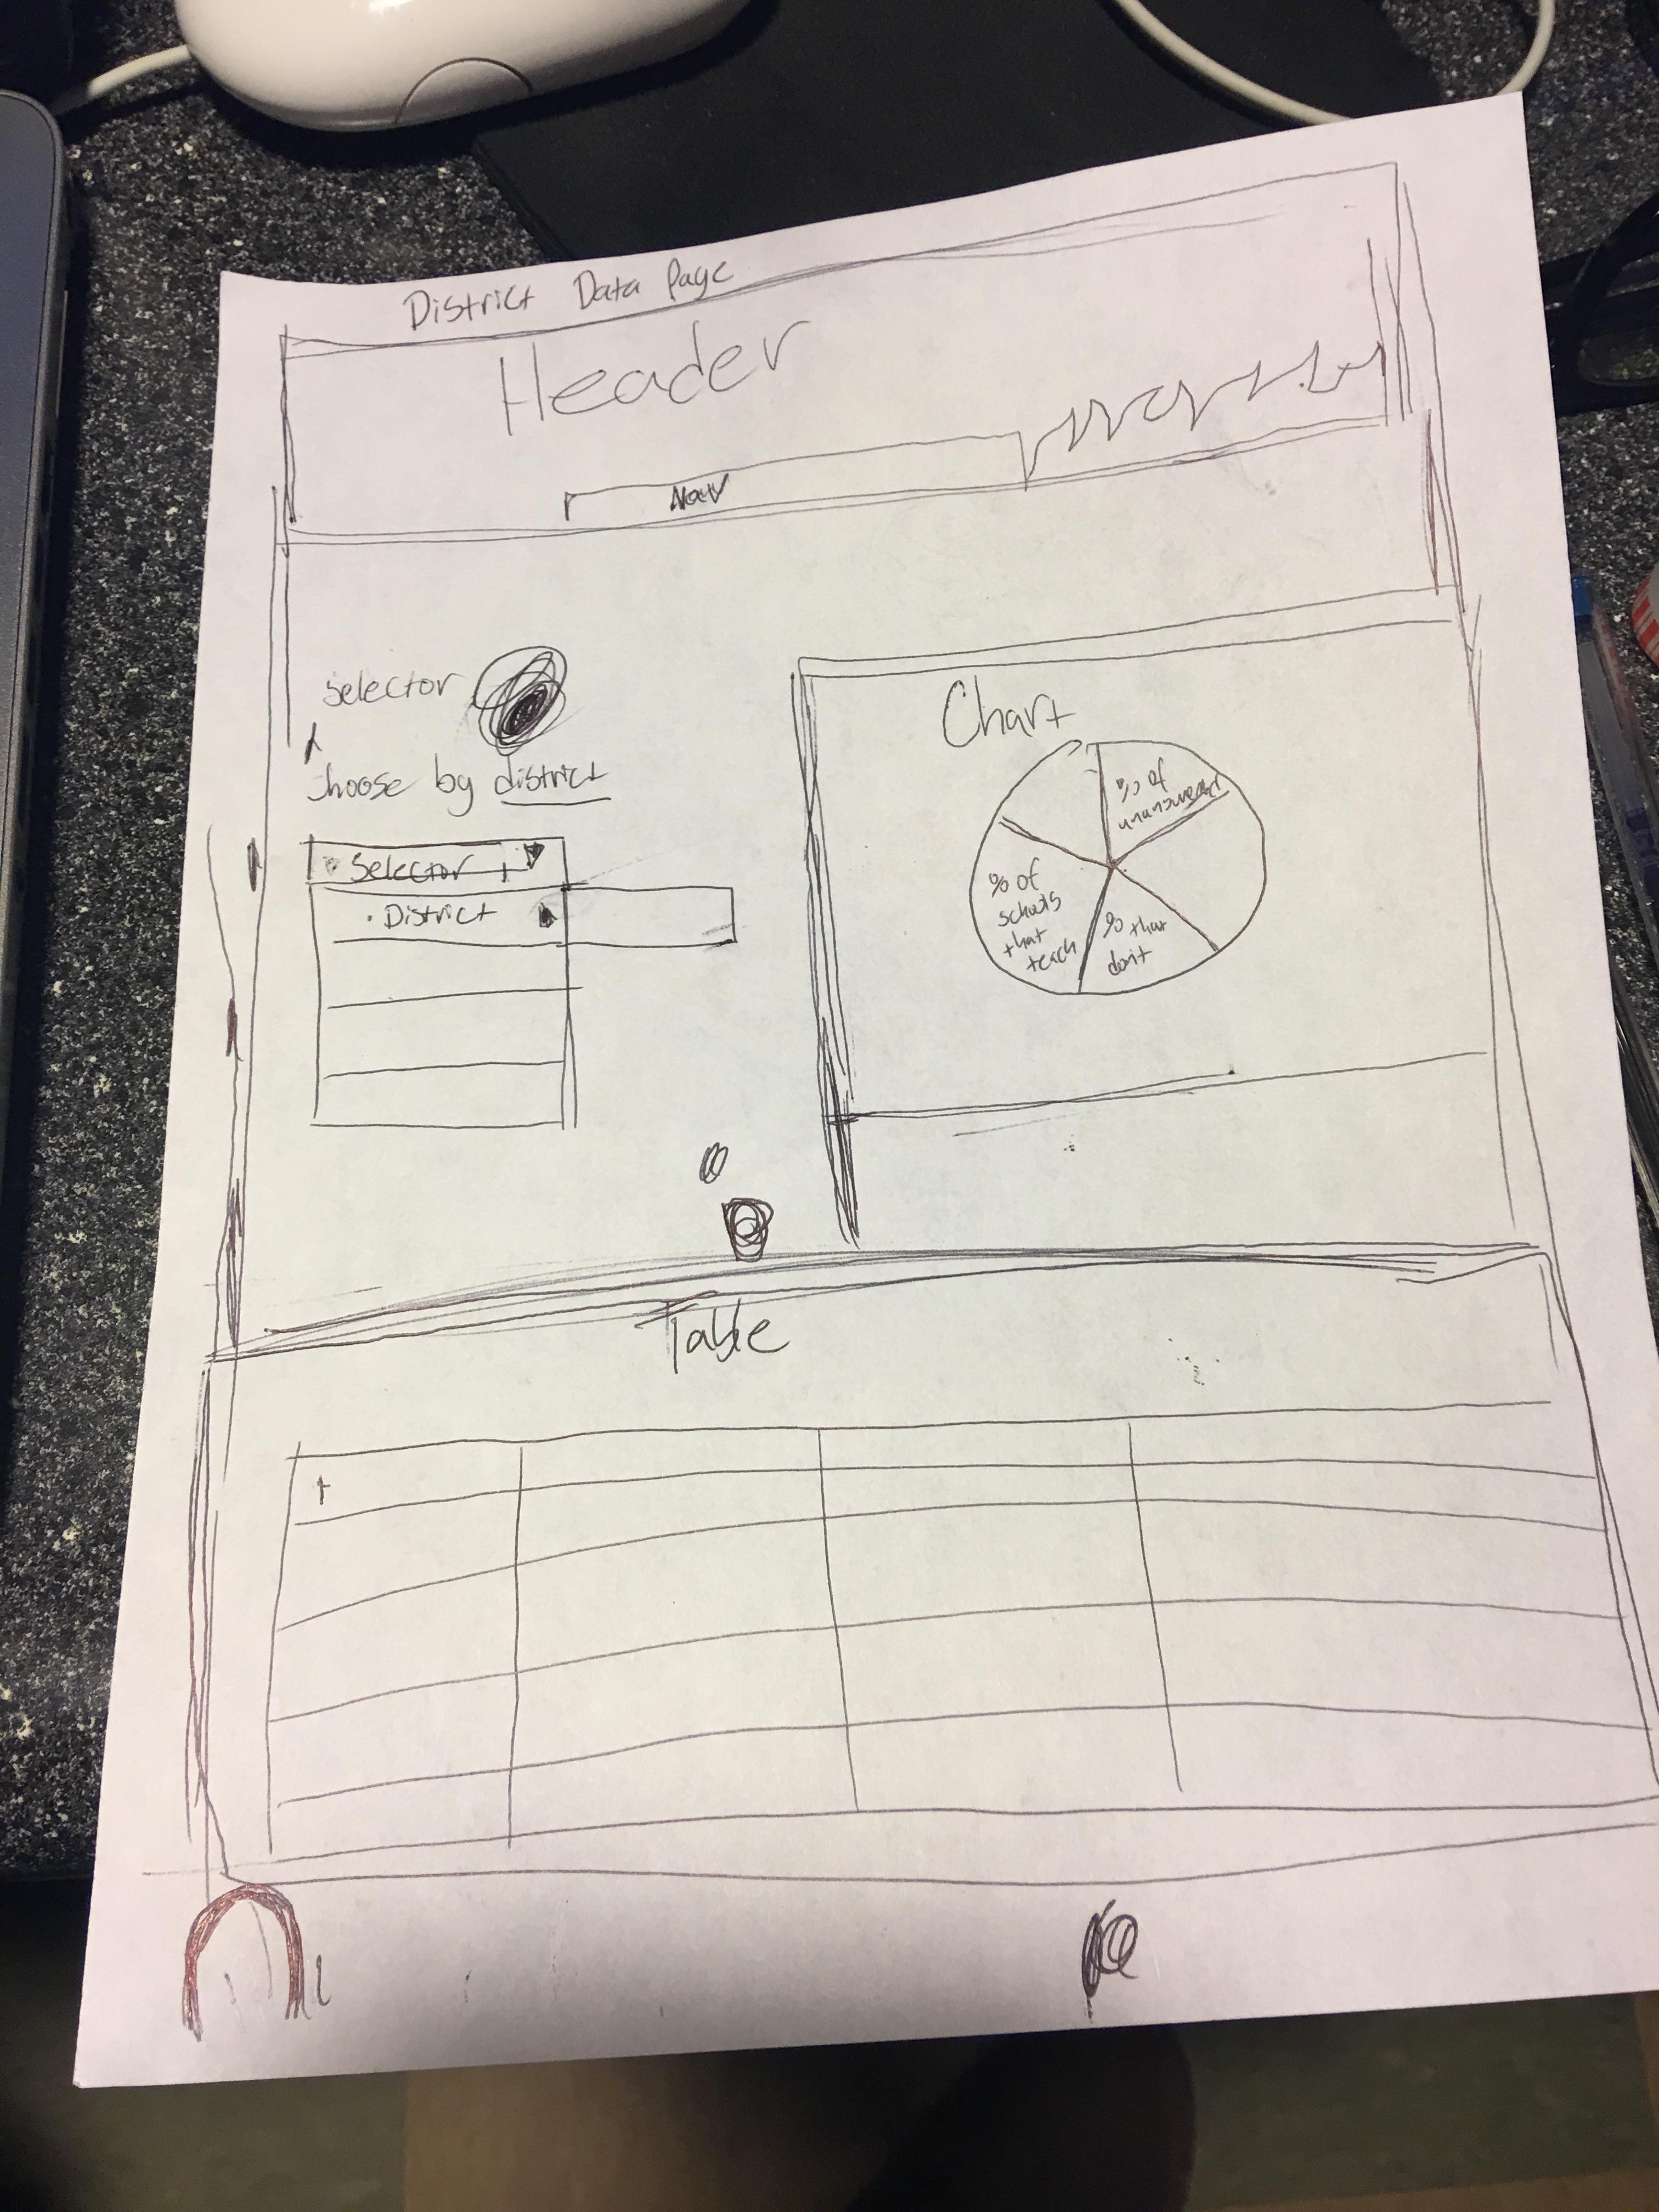 District Data Page
Header
Nav
Selector
choose by district
Selector
• District
Chart
% of
unanswered
% of
schools
that
teach
% that
don't
Table